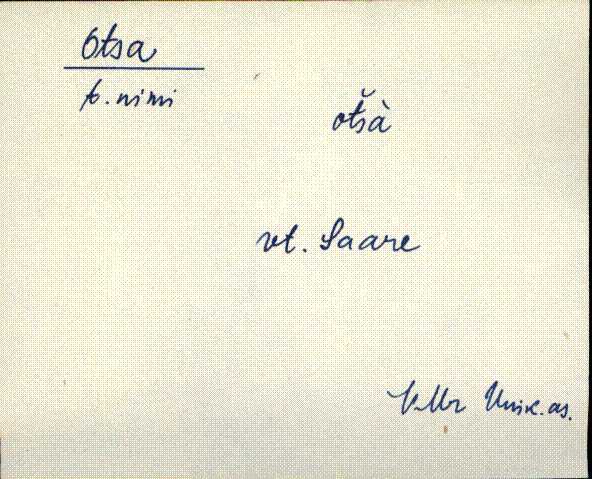 Otsa
t. nimi
otšà
vt. Saare
V-Mr Uusk. as.